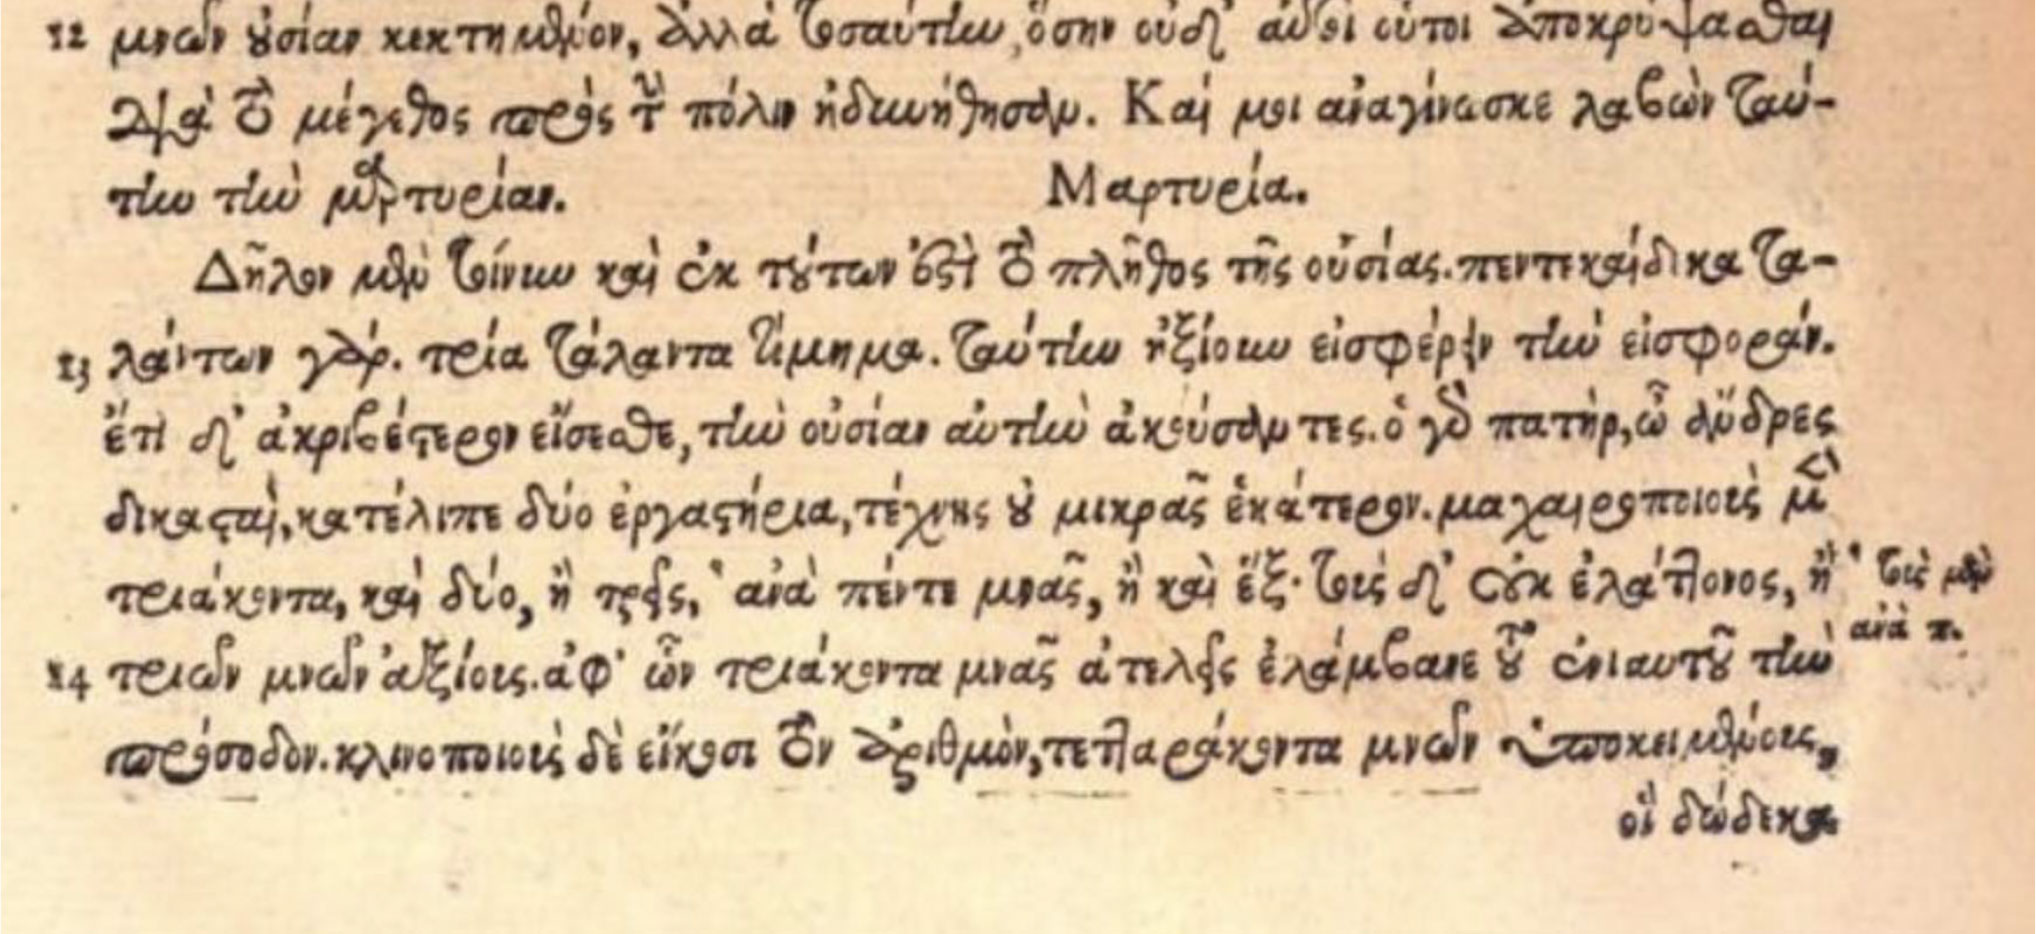 12 μνῶν οὐσίαν κεκτημένον, ἀλλὰ τοσαύτην, ὅσην οὐδ' αὐτοὶ οὗτοι ἀποκρύψασθαι
διὰ τὸ μέγεθος πρὸς τὴν πόλιν ἠδυνήθησαν. Καί μοι ἀναγίνωσκε λαβὼν ταύ-
την τὴν μαρτυρίαν. Μαρτυρία.
Δῆλον μὲν τοίνυν καὶ ἐκ τούτων ἐστὶ τὸ πλῆθος τῆς οὐσίας. πεντεκαίδεκα τα-
13 λάντων γάρ. τρία τάλαντα τίμημα. ταύτην ἠξίουν εἰσφέρειν τὴν εἰσφοράν.
ἔτι δ' ἀκριβέστερον εἴσεσθε, τὴν οὐσίαν αὐτὴν ἀκούσαντες. ὁ γὰρ πατὴρ, ὦ ἄνδρες
δικασταὶ, κατέλιπε δύο ἐργαστήρια, τέχνης οὐ μικρᾶς ἑκάτερον. μαχαιροποιοὺς μὲν
τριάκοντα, καὶ δύο, ἢ τρεῖς, ἀνὰ πέντε μνᾶς, ἢ καὶ ἕξ· τοὺς δ' οὐκ ἐλάττονος, ἢ
τοὺς μὲν
ἀνὰ π.
14 τριῶν μνῶν ἀξίους. ἀφ' ὧν τριάκοντα μνᾶς ἀτελεῖς ἐλάμβανε τοῦ ἐνιαυτοῦ τὴν
πρόσοδον. κλινοποιοὺς δὲ εἴκοσι τὸν ἀριθμὸν, τετταράκοντα μνῶν ὑποκειμένους,
οἳ δώδεκα